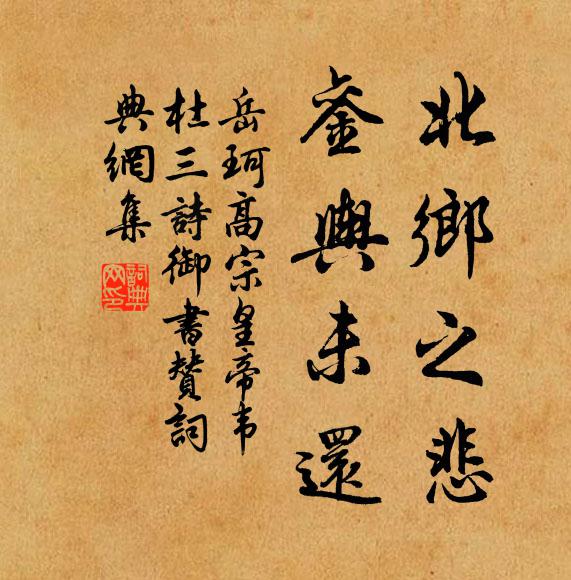 北鄉之悲
銮輿未還
岳珂高宗皇帝韦
杜三詩御書贊詞
典網集
詞典網印